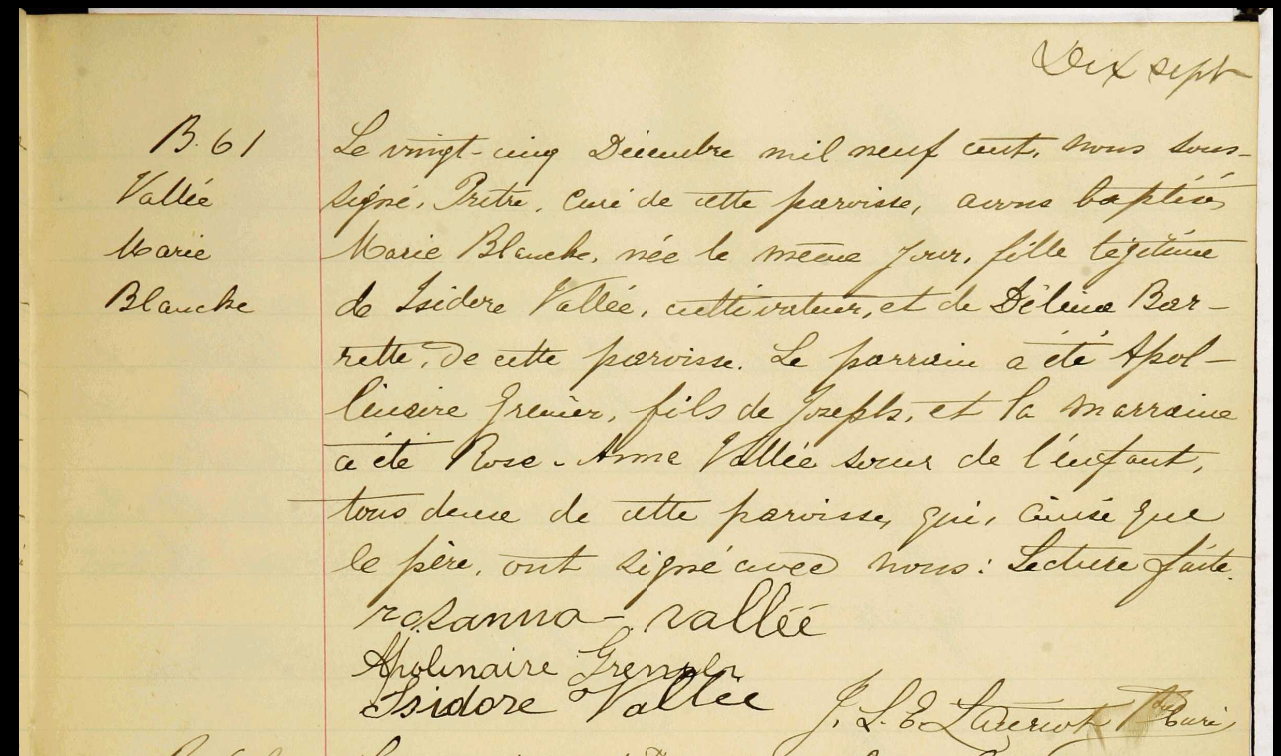 Dix sept
B. 61
Vallée
Marie
Blanche
Le vingt-cinq Décembre mil neuf cent, nous sous-
signé, Prêtre, Curé de cette paroisse, avons baptisé
Marie Blanche, née le même jour, fille légitime
de Isidore Vallée, cultivateur, et de Délina Bar-
rette, de cette paroisse. Le parrain a été Apol-
linaire Grenier, fils de Joseph, et la marraine
a été Rose-Anna Vallée soeur de l'enfant,
tous deux de cette paroisse, qui, ainsi que
le père, ont signé avec nous: Lecture faite.
rosanna - vallée
Apolinaire Grenier
Isidore Vallée
J. L. E. Ptre Curé